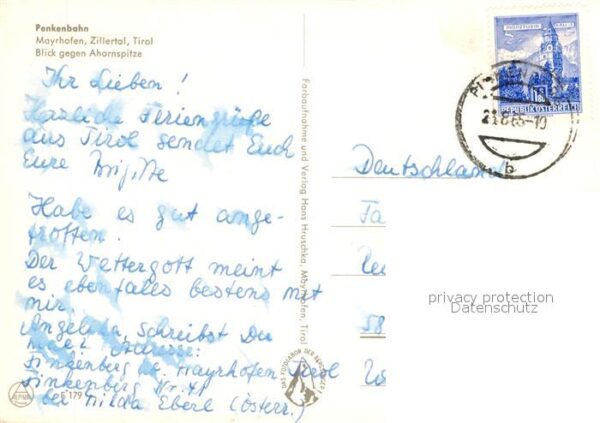 Penkenbahn
Mayrhofen, Zillertal, Tirol
Blick gegen Ahornspitze
Ihr Lieben!
Herzliche Feriengrüße
aus Tirol sendet Euch
Eure Brigitte
Habe es gut ange-
troffen.
Der Wettergott meint
es ebenfalls bestens mit
mir.
Angelika, schreibst Du
Adresse:
Finkenberg Mayrhofen Tirol
Finkenberg Nr. 41
bei Hilda Eberl (Österr.)
Farbaufnahme und Verlag Hans Hruschka, Mayrhofen, Tirol
REPUBLIK ÖSTERREICH
8.65-10
b
Deutschland
58
privacy protection
Datenschutz
179